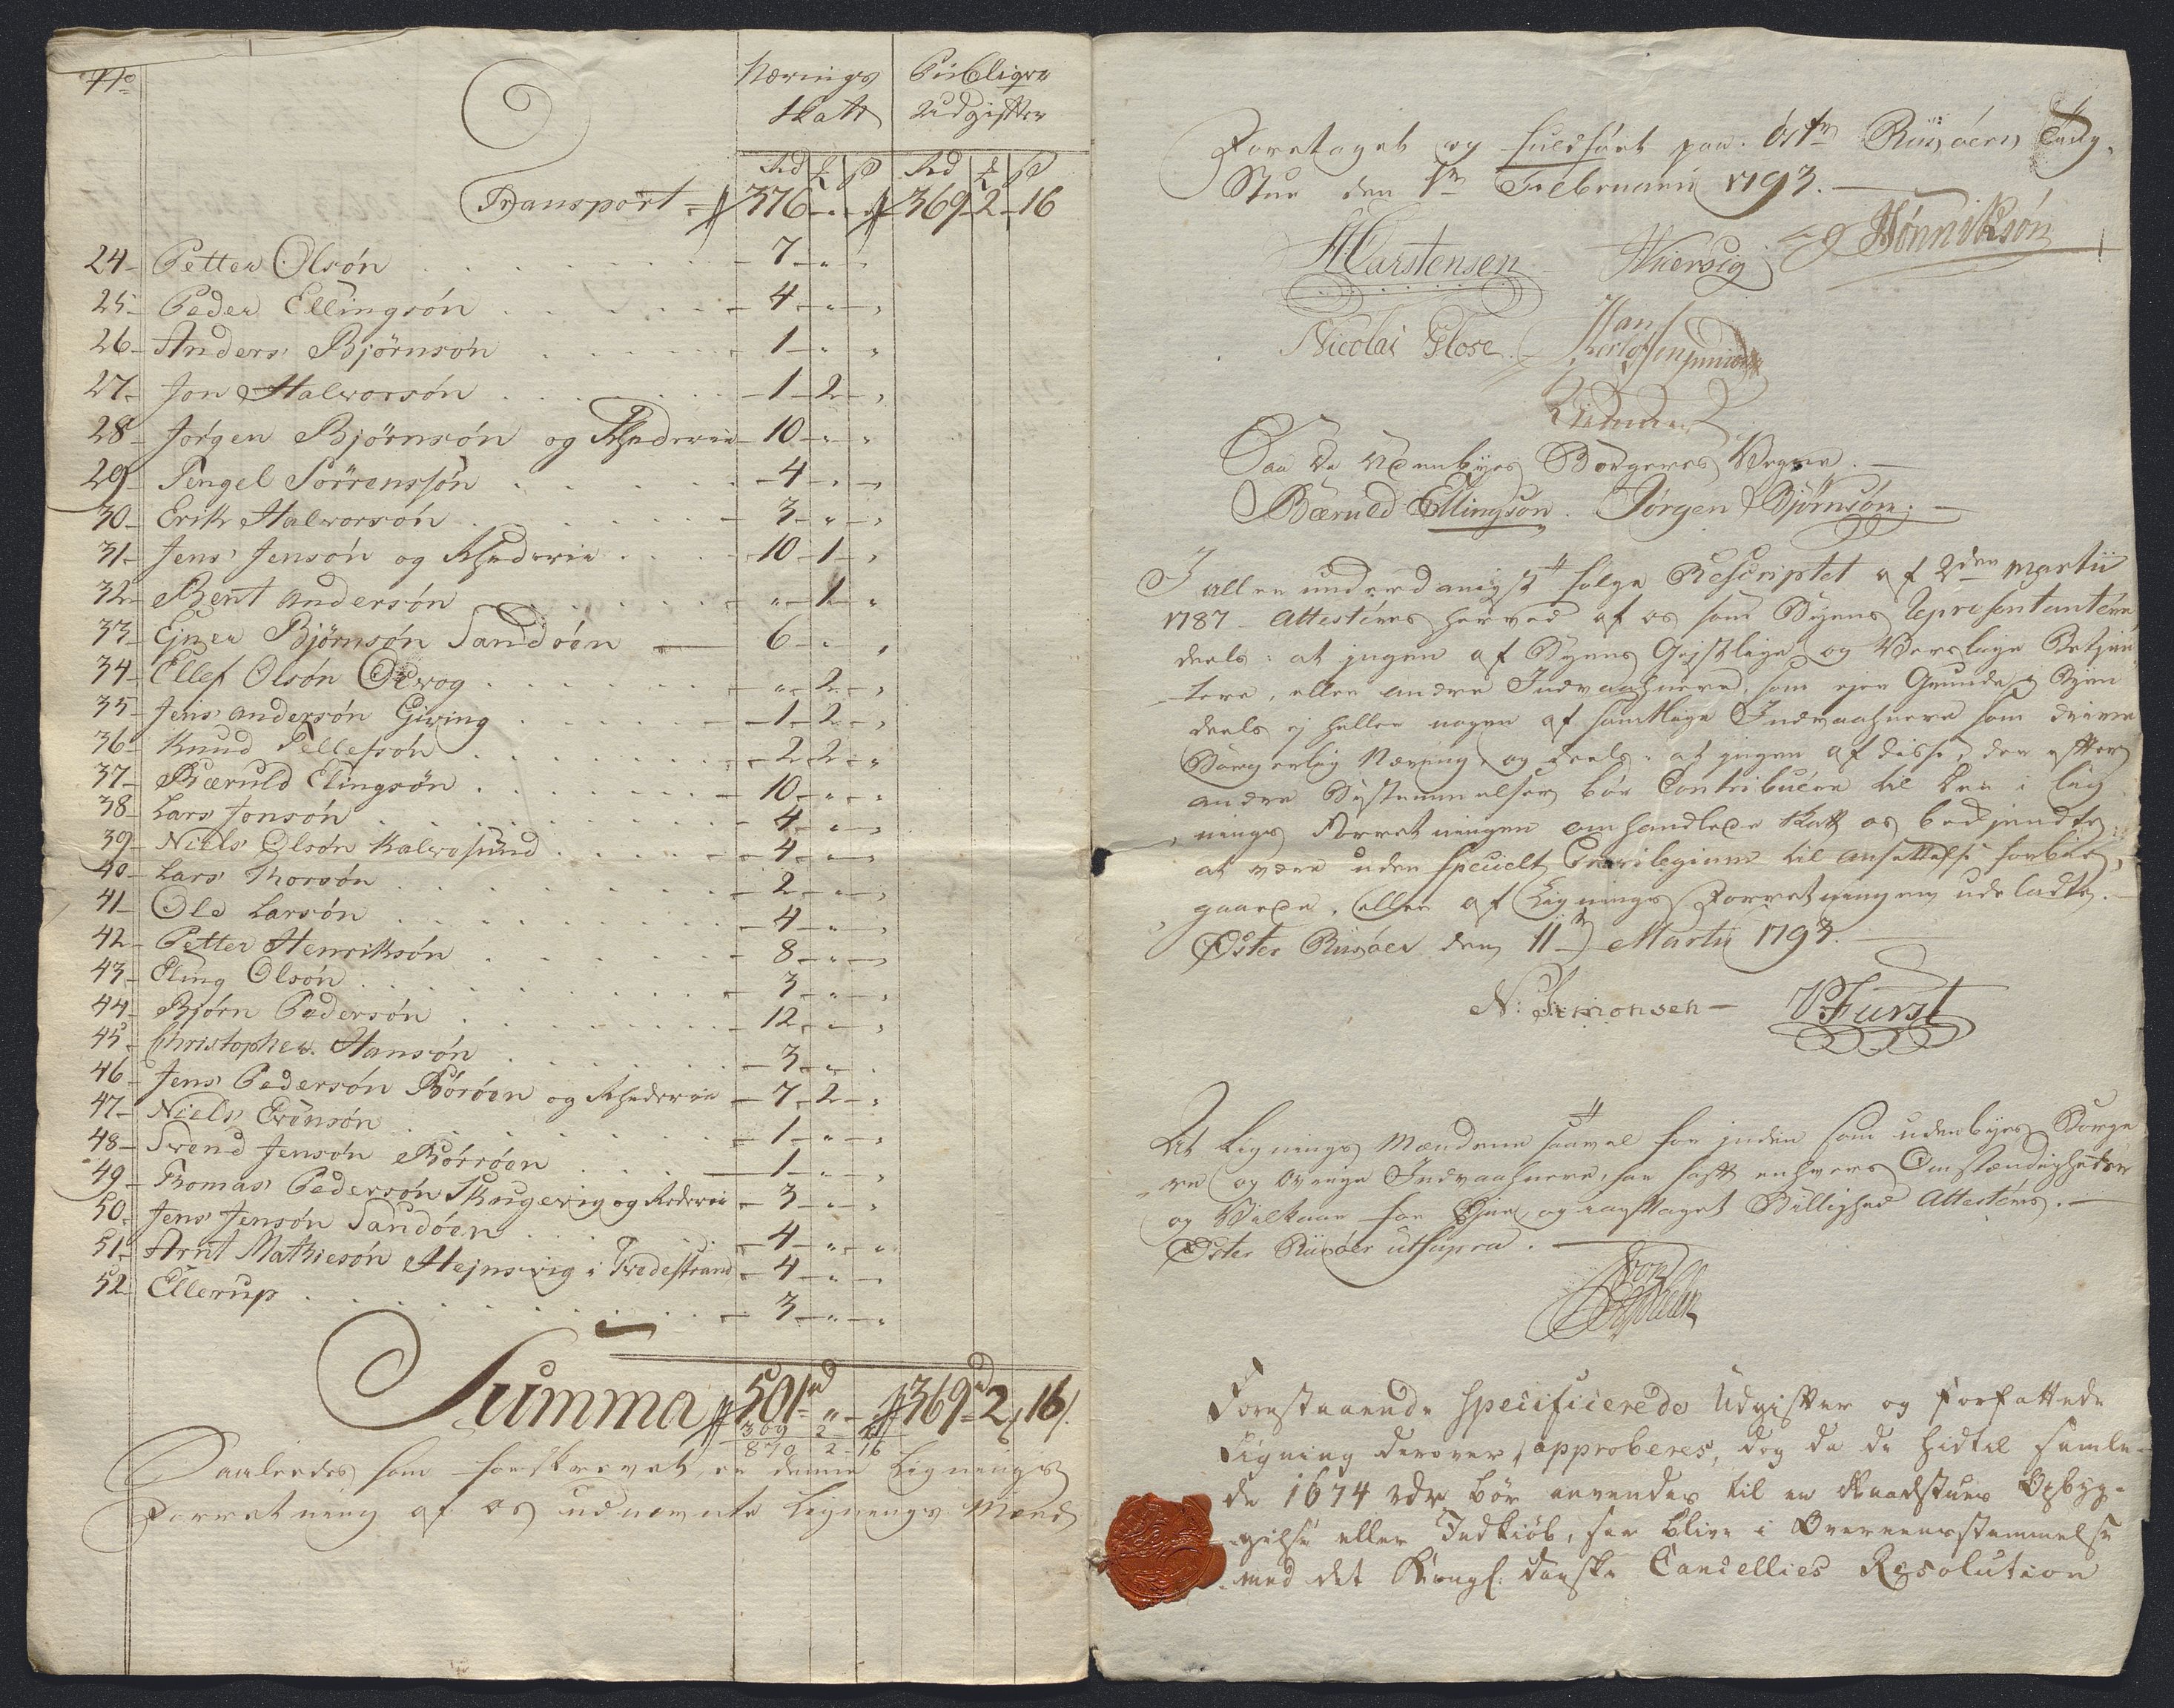 No
Nærings Publiqve
Skatt Udgifter
Rd ß Rd ß
Transport 376 - " - " 369 - 2 - 16
24 - Petter Olsøn - 7 - " - "
25 - Peder Ellingsøn - 4 - " - "
26 - Anders Bjørnsøn - 1 - " - "
27 - Jon Halvorsøn - 1 - 2 - "
28 - Jørgen Bjørnsøn og Rhederie - 10 - " - "
29 - Tengel Sörrenssøn - 4 - " - "
30 - Erik Halvorsøn - 3 - " - "
31 - Jens Jensøn og Rhederie - 10 - 1 - "
32 - Bent Andersøn - " - 1 - "
33 - Ejner Bjørnsøn Sandøen - 6 - " - "
34 - Ellef Olsøn - " - 2 - "
35 - Jens Andersøn Giving - 1 - 2 - "
36 - Knud Tellefsøn - 2 - 2 - "
37 - Bæruld Elingsøn - 10 - " - "
38 - Lars Jonsøn - 4 - " - "
39 - Niels Olsøn Kalvøsund - 4 - " - "
40 - Lars Thorsøn - 2 - " - "
41 - Ole Larsøn - 4 - " - "
42 - Petter Henriksøn - 8 - " - "
43 - Eling Olsøn - 3 - " - "
44 - Bjørn Pedersøn - 12 - " - "
45 - Christopher Hansøn - 3 - " - "
46 - Jens Pedersøn Börøen og Rhederie - 7 - 2 - "
47 - Niels Evensøn - 1 - " - "
48 - Svend Jensøn Börröen - 1 - " - "
49 - Thomas Pedersøn Skugevig og Rederie - 3 - " - "
50 - Jens Jensøn Sandøen - 4 - " - "
51 - Arnt Mathiesøn Hejnsvig i Tvedestrand - 4 - " - "
52 - Ellerup - 3 - " - "
Summa 501 rd " - " 369 rd 2, 16 /.
369 2 16
870 2 - 16
Saaledes som forskrevet, er denne Lignings
Forretning af os udnævnte Lignings Mænd
Foretaget og fuldført paa Østr Riisøers Ting
Stue den 1te Februarii 1793. -
H Carstensen Hønniksøn
Nicolai Close
Paa de Udenbyes Borgeres Vegne. -
Bæruld Ellingsøn. Jørgen Bjørnsøn. -
I allerunderdanigst følge Rescriptet af 2den Martii
1787 - Attesteres herved af os som Byens Representantere
deels: at ingen af Byens Gejstlige og Verslige Betjen-
tere, eller andre Indvaahnere, som ejer Grunde i Byen
deels ej heller nogen af samtlige Indvaahnere som drive
Borgerlig Næring, og deels: at ingen af disse, der efter
andre Bestemmelser bør Contribuere til den i Lig-
nings Forretningen omhandlede Skatt os bekjendte
at være uden specielt Privilegium til Ansettelse forbie-
gaaede, eller af Lignings Forretningen udeladte. -
Øster Riisøer den 11te Martii 1793. -
N: Simonsen - V Fürst
At Lignings Mændene saavel for inden som udenbyes Borge
re og øvrige Indvaahnere, har hafft enhvers Omstændigheder
og Vilkaar for Øjne, og iagttaget Billighed Attesteres. -
Øster Riisøer ut supra. -
Forestaaende Specificerede Udgifter og forfattede
Ligning derover, approberes, dog da de hidtil samle-
de 1674 rdr bør anvendes til en Raadstues Opbyg-
gelse eller Indkiøb, saa blive i Overeensstemmelse
med det Kongl: danske Cancellies Resolution